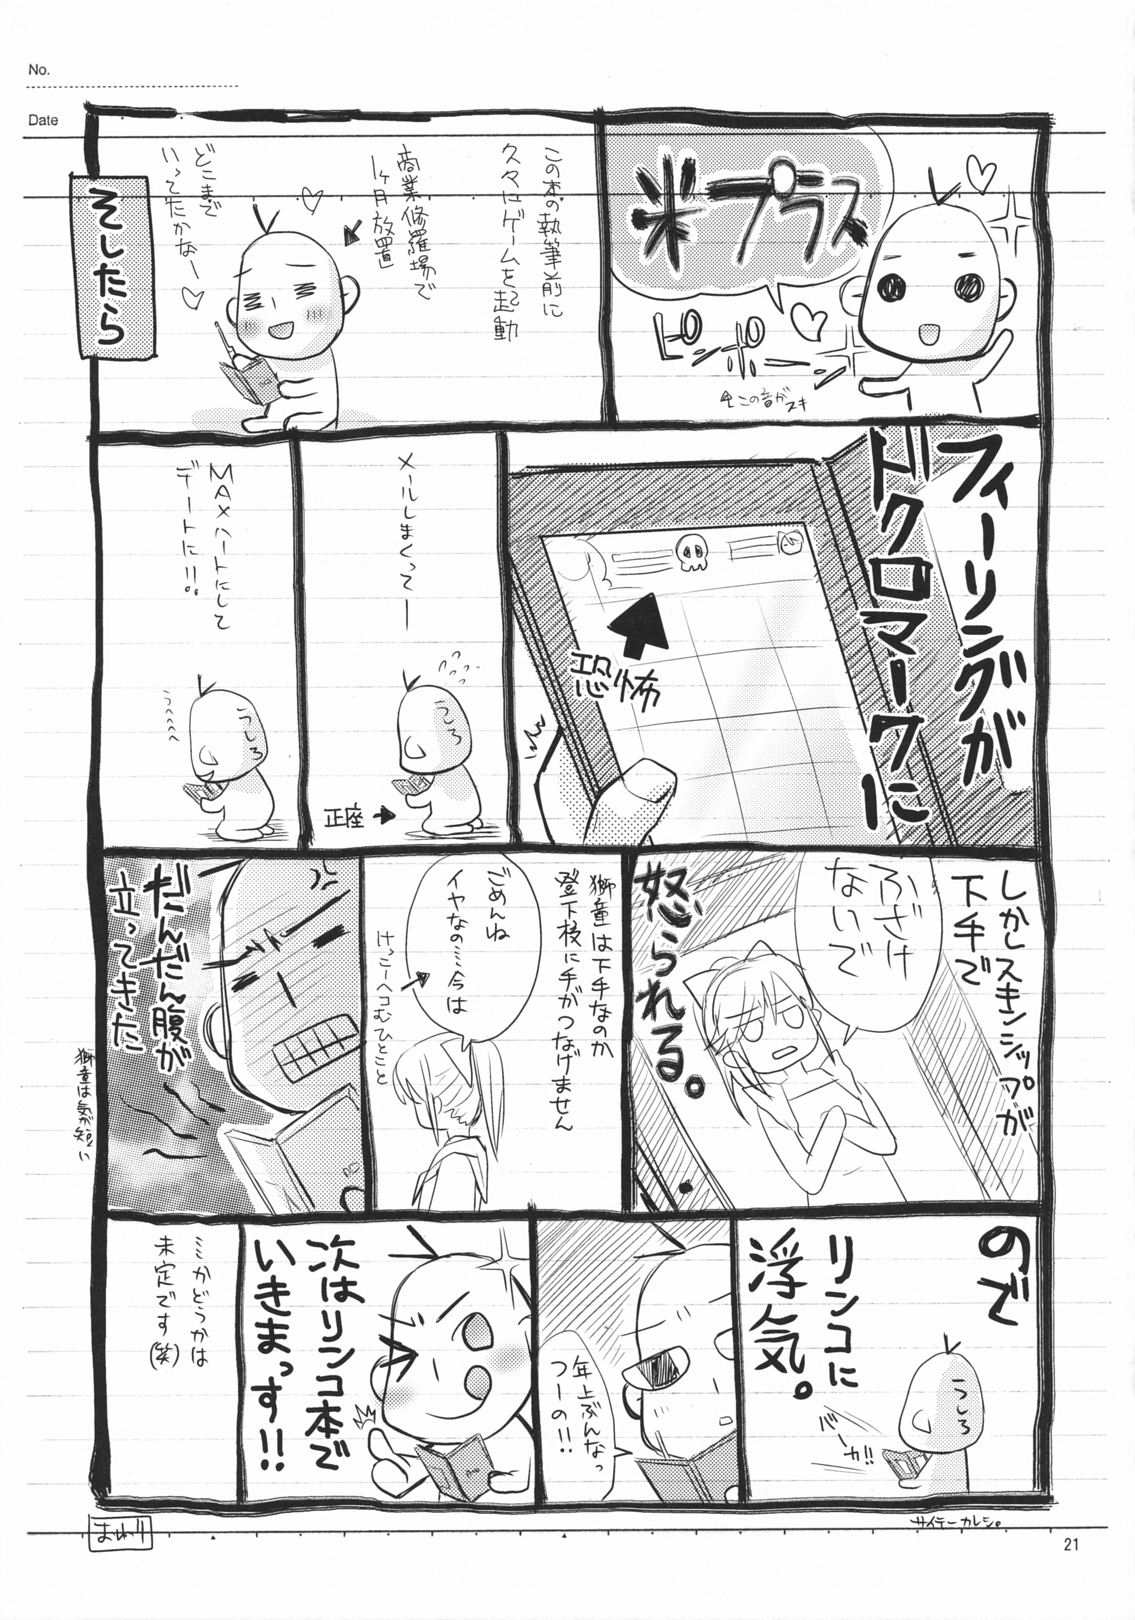 No.
Date
米プラス
ピンポーン
この音がスキ
この本の執筆前に
久々にゲームを起動
商業修羅場で
1ヶ月放置
どこまで
いってたかなー
そしたら
フィーリングが
ドクロマークに
恐怖
メールしまくってー
うしろ
正座
MAXハートにして
デートに!!
うしろ
うへへへへ
しかしスキンシップが
下手で
怒られる。
ふざけ
ないで
獅童は下手なのか
登下校に手がつなげません
ごめんね
イヤなの…今は
けっこーヘコむひとこと
だんだん腹が
立ってきた
獅童は気が短い
ので
リンコに
浮気。
うしろ
バーカ!!
サイテーカレシ。
年上ぶんなっ
つーの!!
次はリンコ本で
いきまっす!!
…かどうかは
未定です(笑)
おわり
21